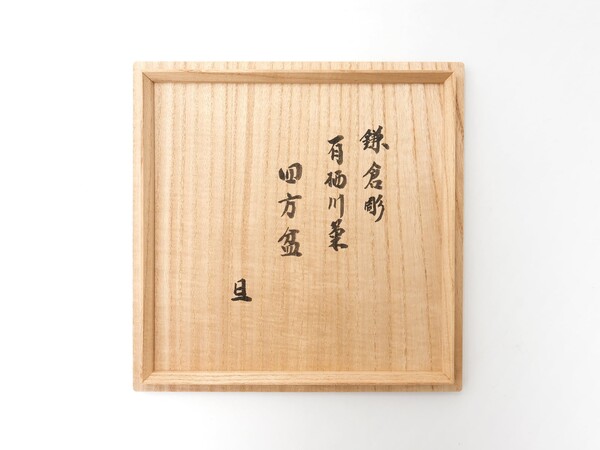 鎌倉彫
有栖川菊
四方盆
旦